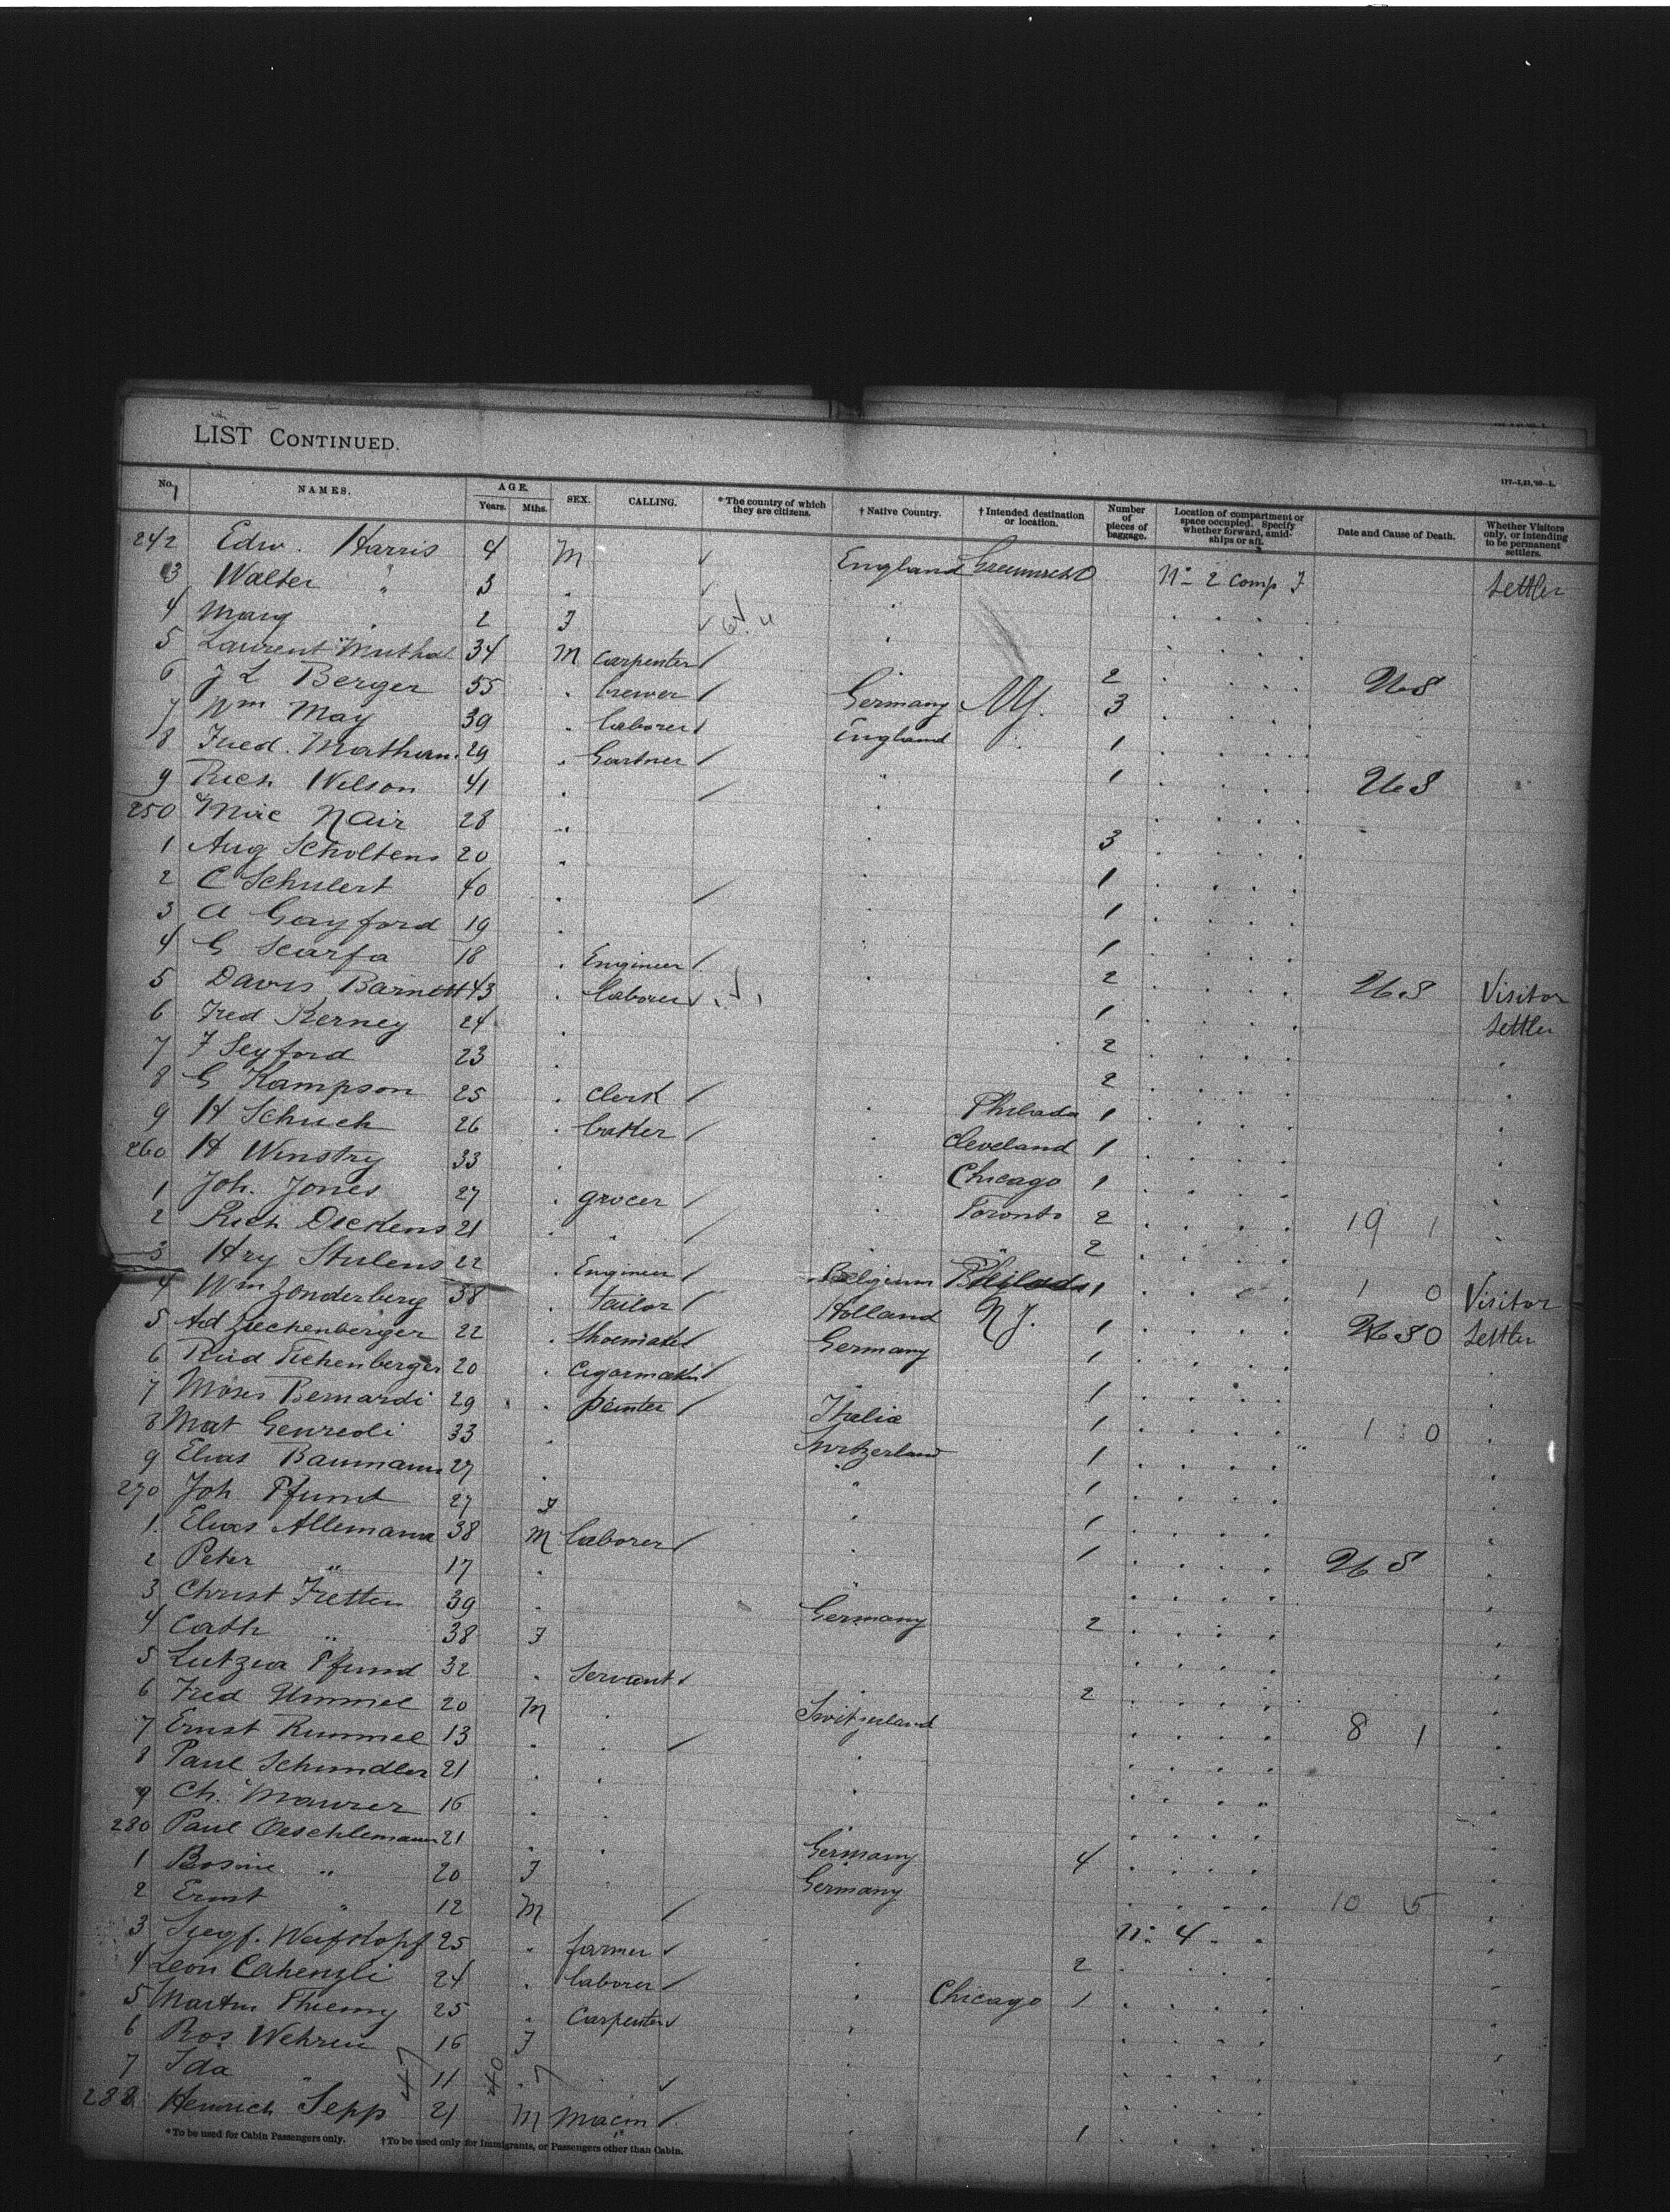 LIST CONTINUED.
177-1,21,'90-L.
No. NAMES. AGE. Years. Mths. SEX. CALLING. *The country of which they are citizens. †Native Country. †Intended destination or location. Number of pieces of baggage. Location of compartment or space occupied. Specify whether forward, amidships or aft. Date and Cause of Death. Whether Visitors only, or intending to be permanent settlers.
242 Edw. Harris 4 M England No 2 Comp F Settler
3 Walter " 3
4 Mary 2 F
5 Laurent 34 M Carpenter 2
6 J L Berger 55 brewer Germany NY. 3
7 Wm May 39 laborer England 1
8 Fred. 29 Gartner 1
9 Rich Wilson 41
250 Nair 28 3
1 Aug Scholtens 20 1
2 C Schulert 40 1
3 A Gayford 19 1
4 G Scarfa 18 Engineer 2 Visitor
5 Davis Barnett 43 laborer 1 Settler
6 Fred Kerney 24 2
7 F Seyford 23 2
8 G Kampson 25 Clerk Philada 1
9 H Schuch 26 baker Cleveland 1
260 H Winstry 33 Chicago 1
1 Joh. Jones 27 grocer Toronto 2 19 1
2 Rich Dickens 21 " " 2
3 Hry Stulens 22 Engineer Belgium Philada 1 1 0 Visitor
4 Wm Zonderberg 38 tailor Holland N J. 1 Settler
5 Ad 22 Shoemaker Germany 1
6 Rud Eichenberger 20 Cigarmaker 1
7 Moses Bernardi 29 painter Italia 1 1 0
8 Mat 33 Switzerland 1
9 Elias Baumann 27 " 1
270 Joh Pfund 27 F 1
1 Elias Allemann 38 M laborer 1
2 Peter " 17
3 Christ Fretter 39 Germany 2
4 Cath " 38 F
5 Lutzia Pfund 32 Servant 2
6 Fred 20 M Switzerland 8 1
7 Ernst Rummel 13
8 Paul Schindler 21
9 Ch. Maurer 16
280 Paul Oeschlemann 21 Germany 4
1 Rosine " 20 F Germany
2 Ernst " 12 M 10 5
3 Siegf. 25 farmer No 4
4 Leon Cahenzli 24 laborer 2
5 Martin Thieny 25 Carpenter Chicago 1
6 Ros Wehren 16 F
7 Ida " 11
288 Heinrich Sepp 21 M Macon 1
47 40 7
*To be used for Cabin Passengers only. †To be used only for Immigrants, or Passengers other than Cabin.